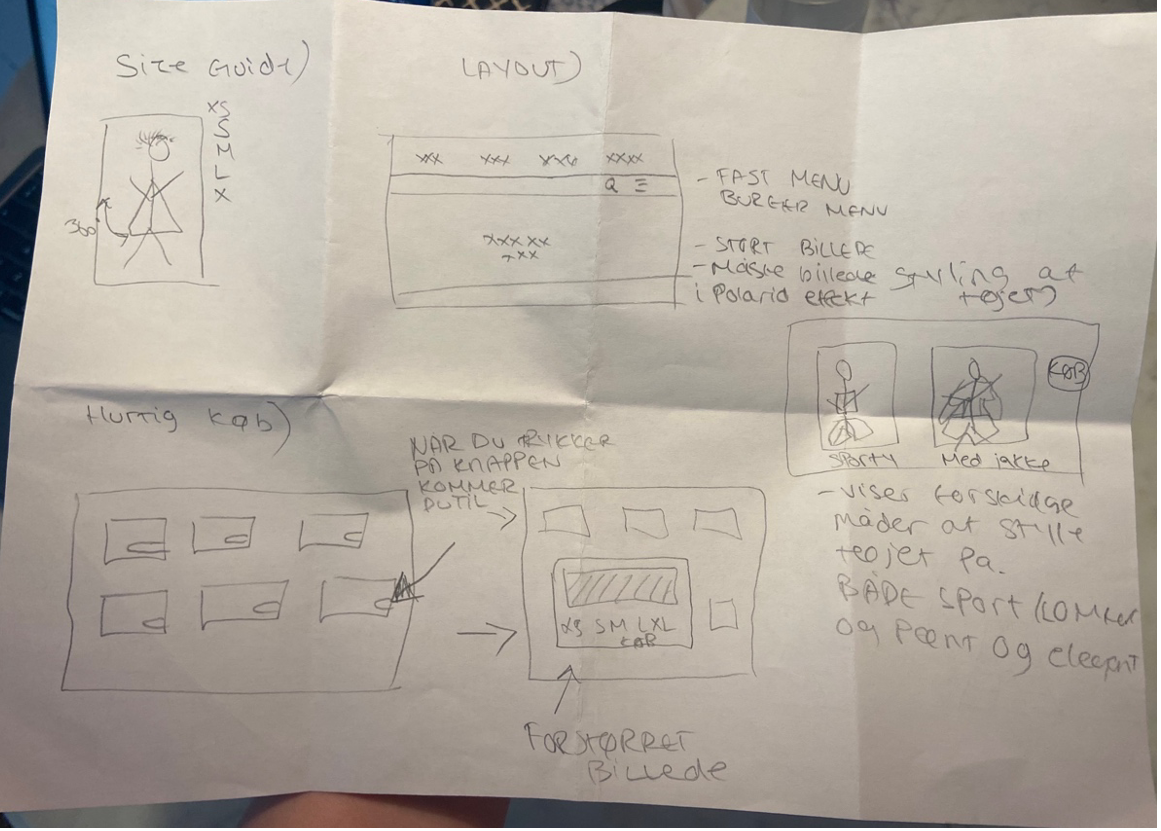 Size Guide)
XS
S
M
L
X
360°
LAYOUT)
xxx xxx xxx xxxx
Q ☰
xxxxx
xxx
- FAST MENU
BURGER MENU
- STORT BILLEDE
- Måske billede
i Polarid effekt
Styling af
tøjet)
KØB
Sporty Med jakke
- viser forskidge
måder at stille
teojet på.
BÅDE SPORT
og Peent og elegent
Hurtig Køb)
NÅR DU TRYKKER
PÅ KNAPPEN
KOMMER
DU TIL
XS S M L XL
KØB
FORSTØRRET
Billede